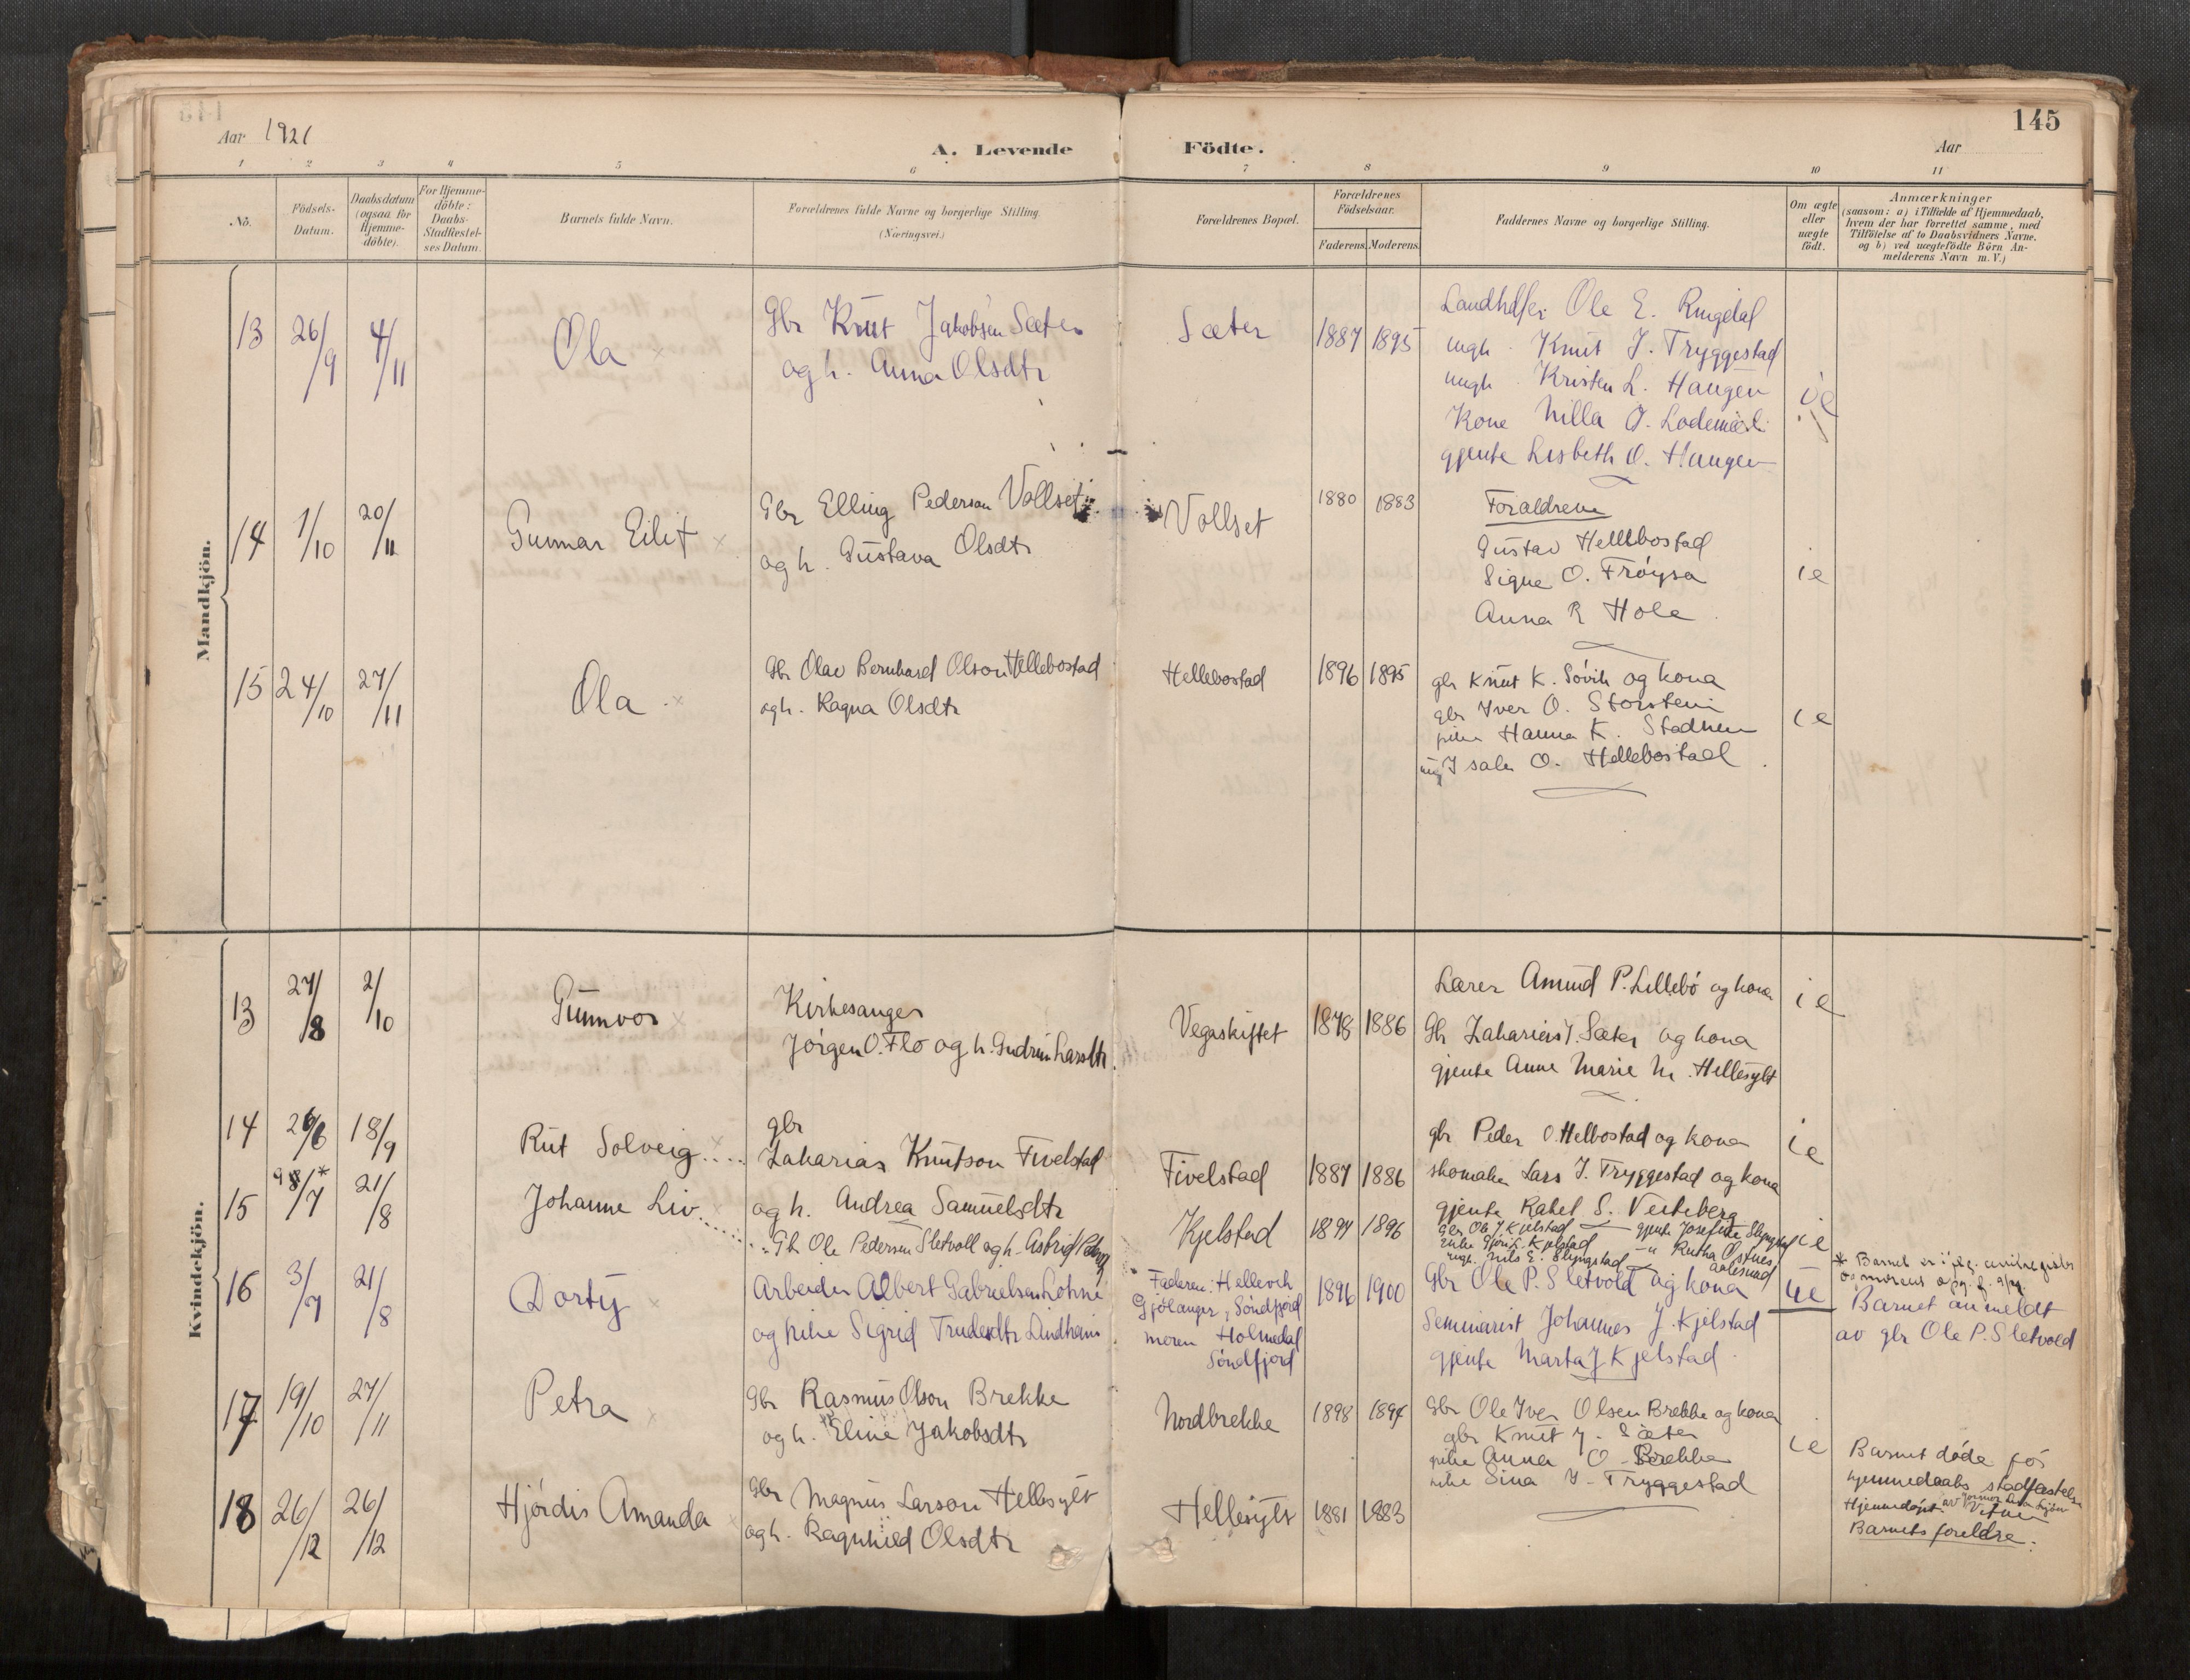 145
Aar 1921
A. Levende Födte.
Aar
1 2 3 4 5 6 7 8 9 10 11
No.
Födsels-Datum.
Daabsdatum (ogsaa for Hjemme-döbte).
For Hjemme-döbte: Daabs-Stadfæstel-ses Datum.
Barnets fulde Navn.
Forældrenes fulde Navne og borgerlige Stilling.
(Næringsvei.)
Forældrenes Bopæl.
Forældrenes Födselsaar.
Faderens. Moderens.
Faddernes Navne og borgerlige Stilling.
Om ægte eller uægte födt.
Anmærkninger
(saasom: a) i Tilfælde af Hjemmedaab,
hvem der har forrettet samme, med
Tilföielse af to Daabsvidners Navne.
og b) ved uægtefödte Börn An-
melderens Navn m. V.)
Mandkjön.
13 26/9 4/11 Ola
Gbr Knut Jakobsen Sæter
og h. Anna Olsdtr
Sæter 1887 1895
Landhdlr Ole E. Ringdal
ungk. Knut J. Tryggestad
ungk. Kristen L. Haugen
Kone Nilla J. Lodemæl
gjente Lisbeth O. Haugen
ie
14 1/10 20/11 Gunnar Eilif
Gbr Elling Pederson Vollset
og h. Gustava Olsdtr
Vollset 1880 1883
Foraldrene
Gustav Hellebostad
Signe O. Frøysa
Anna R Hole
ie
15 24/10 27/11 Ola
Gbr Olav Bernhard Olson Hellebostad
og h. Ragna Olsdtr
Hellebostad 1896 1895
gbr Knut K. Søvik og kona
gbr Iver O. Storstein
pike Hanna K. Stadheim
ung Isak O. Hellebostad
ie
Kvindekjön.
13 27/8 2/10 Gunnvor
Kirkesanger
Jørgen O. Flo og h. Gudrun Larsdtr
Vegaskiftet 1878 1886
Lærer Amund P. Lillebø og kona
Gbr Zakarias J. Sæter og kona
gjente Anne Marie M. Hellesylt
ie
14 26/6 18/9 Rut Solveig
gbr
Zakarias Knutson Fivelstad
og h. Andrea Samuelsdtr
Fivelstad 1887 1886
gbr Peder O. Helbostad og kona
skomaker Lars J. Tryggestad og kona
gjente Rakel S. Vesteberg
ie
15 9 8/7* 21/8 Johanne Liv
Gbr Ole Pedersen Sletvoll og h. Astrid
Kjelstad 1894 1896
Gbr Ole J Kjelstad gjente Josefine Slyngstad
ungk. Nils E. Slyngstad Rutha Østnes
Aalesund
ie
* Barnet er i
morens opg. f. 9/7.
16 3/7 21/8 Dorty
Arbeider Albert Gabrielsen Lohne
og pike Sigrid Trudesdtr Lindheim
Faderen: Hellevik
Gjølanger, Søndfjord
moren Holmedal
Søndfjord
1896 1900
Gbr Ole P. Sletvold og kona
Seminarist Johannes J. Kjelstad
gjente Marta J Kjelstad
ue
Barnet anmeldt
av gbr Ole P. Sletvold
17 19/10 27/11 Petra
Gbr Rasmus Olson Brekke
og h. Eline Jakobsdtr
Nordbrekke 1898 1894
Gbr Ole Iver Olsen Brekke og kona
gbr Knut J. Sæter
pike Anna O. Brekke
pike Sina J. Tryggestad
ie
18 26/12 26/12 Hjørdis Amanda
Gbr Magnus Larson Hellesylt
og h. Ragnhild Olsdtr
Hellesylt 1881 1883
Barnet døde før
hjemmedaabs stadfæstelse
Hjemmedøpt av
Vitner
Barnets foreldre.